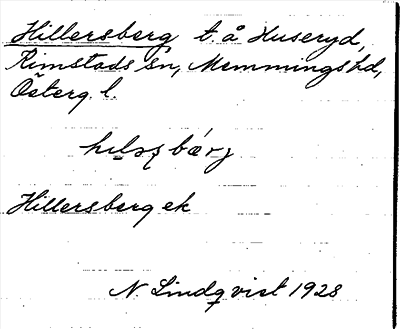 Hillersberg t. å Huseryd,
Rimstads sn, Memmings hd,
Österg. l.
Hillersberg ek
N. Lindqvist 1928